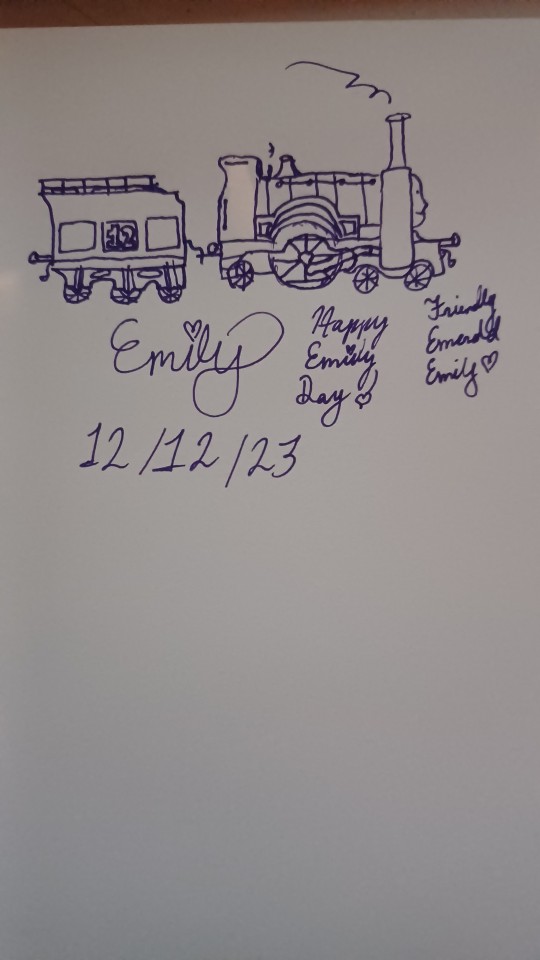 12
Emily
Happy
Emily
Day
Friendly
Emerald
Emily
12/12/23